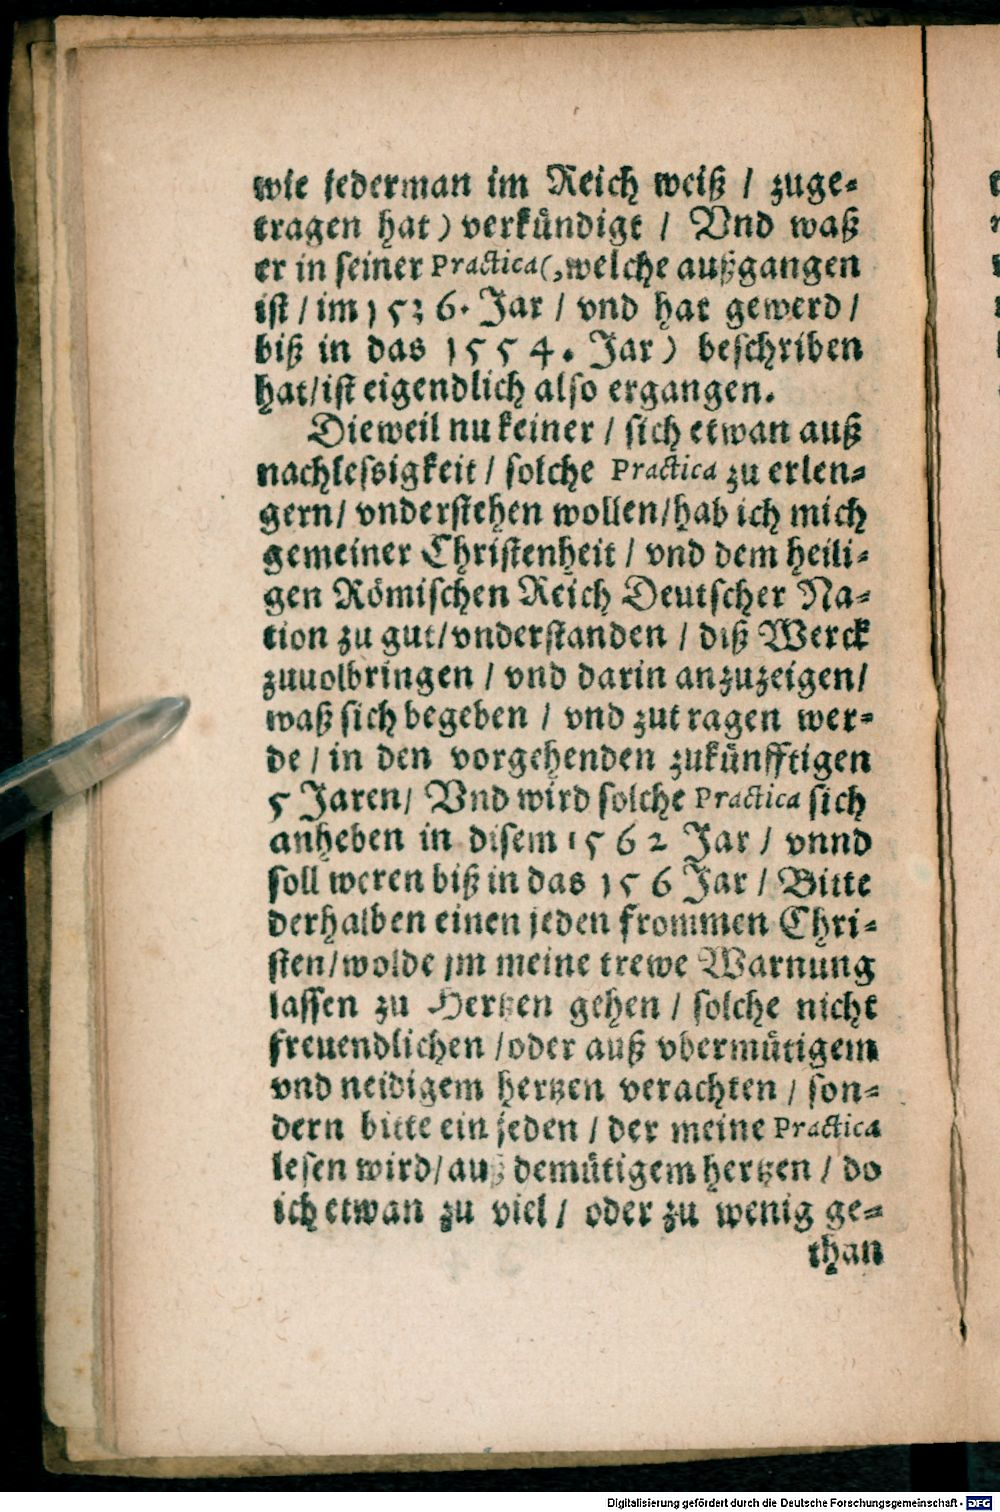 wie jederman im Reich weiß / zuge⸗
tragen hat) verkündigt / Vnd waß
er in seiner Practica (,welche außgangen
ist / im 1536. Jar / vnd hat gewerd /
biß in das 1554. Jar) beschriben
hat/ist eigendlich also ergangen.
Dieweil nu keiner / sich etwan auß
nachlessigkeit / solche Practica zu erlen⸗
gern/ vnderstehen wollen/hab ich mich
gemeiner Christenheit / vnd dem heili⸗
gen Römischen Reich Deutscher Na⸗
tion zu gut/vnderstanden / diß Werck
zuuolbringen / vnd darin anzuzeigen/
waß sich begeben / vnd zutragen wer⸗
de / in den vorgehenden zukünfftigen
5 Jaren/ Vnd wird solche Practica sich
anheben in disem 1562 Jar / vnnd
soll weren biß in das 156 Jar / Bitte
derhalben einen jeden frommen Chri⸗
sten/wolde jm meine trewe Warnung
lassen zu Hertzen gehen / solche nicht
freuendlichen /oder auß vbermütigem
vnd neidigem hertzen verachten / son⸗
dern bitte ein jeden / der meine Practica
lesen wird/auß demütigem hertzen / do
ich etwan zu viel / oder zu wenig ge⸗
than
Digitalisierung gefördert durch die Deutsche Forschungsgemeinschaft - DFG